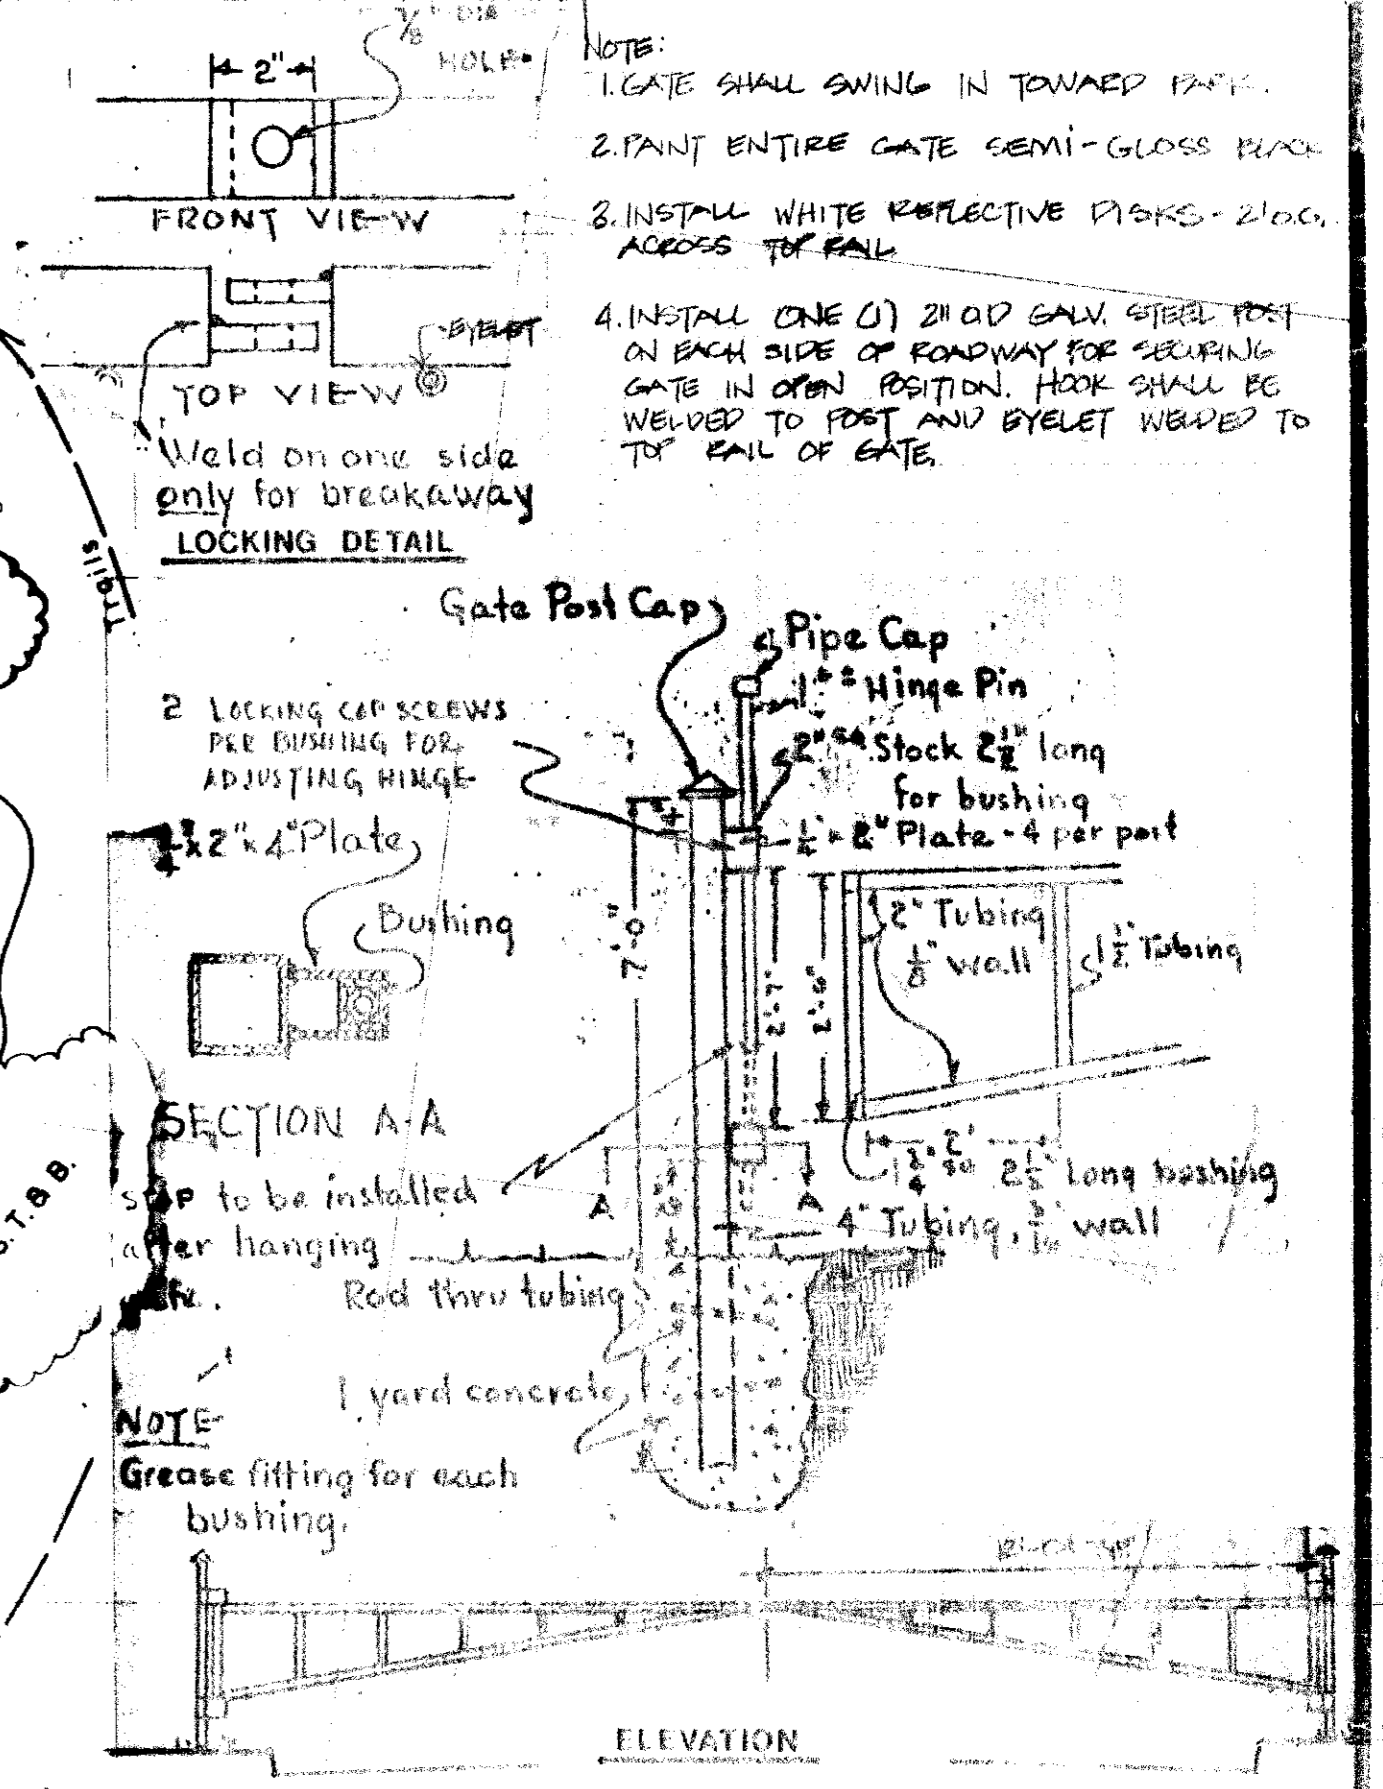 7/8" DIA
HOLE
2"
FRONT VIEW
EYELET
TOP VIEW
Weld on one side
only for breakaway
LOCKING DETAIL
NOTE:
1. GATE SHALL SWING IN TOWARD PARK.
2. PAINT ENTIRE GATE SEMI-GLOSS BLACK
3. INSTALL WHITE REFLECTIVE DISKS - 2' O.C.
ACROSS TOP RAIL
4. INSTALL ONE (1) 2" O.D GALV. STEEL POST
ON EACH SIDE OF ROADWAY FOR SECURING
GATE IN OPEN POSITION. HOOK SHALL BE
WELDED TO POST AND EYELET WELDED TO
TOP RAIL OF GATE.
Trails
Gate Post Cap
Pipe Cap
Hinge Pin
2 LOCKING CAP SCREWS
PER BUSHING FOR
ADJUSTING HINGE
2" sq. Stock 2 1/2" long
for bushing
1/4" x 2" Plate - 4 per post
1/4" x 2" x 4" Plate
Bushing
7'-0"
2'-7"
2'-6"
2" Tubing
1/8" wall
1 1/2" Tubing
SECTION A-A
stop to be installed
after hanging
2'
1 3/4" sq 2 1/2" Long bushing
A
A
4" Tubing, 3/16" wall
Rod thru tubing
1 yard concrete
NOTE
Grease fitting for each
bushing.
S.T. & B.
ELEVATION